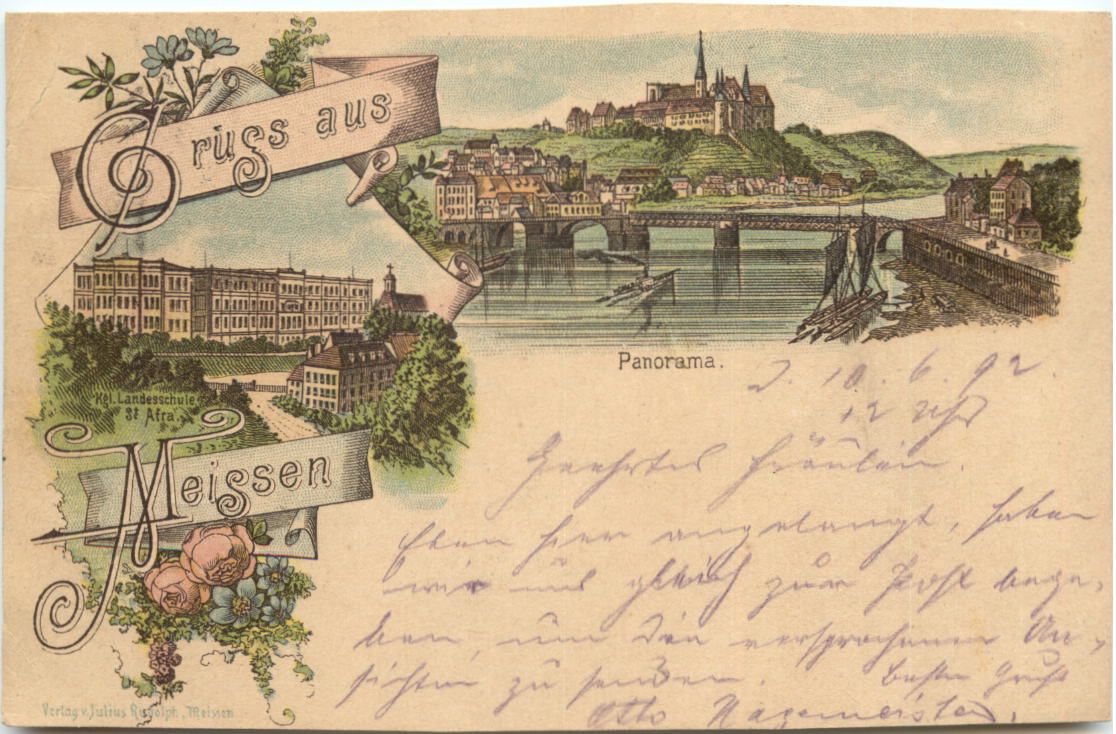 Gruss aus
Kgl. Landesschule
St Afra.
Meissen
Verlag v. Julius Rudolph, Meissen
Panorama.
D. 10. 6. 92.
12 Uhr
Geehrtes Fräulein.
Eben hier angelangt, haben
wir uns gleich zur Post bege-
ben, um die versprochenen An-
sichten zu senden. Besten Gruß
Otto Hagemeister.